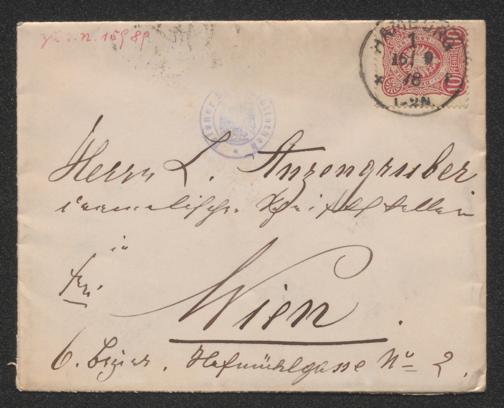 HAMBURG
1
16/9
78
1-2N.
10
Herrn L. Anzengruber
dramatischer Schriftsteller
in
Wien
6. Bezirk. Hofmühlgasse No 2.